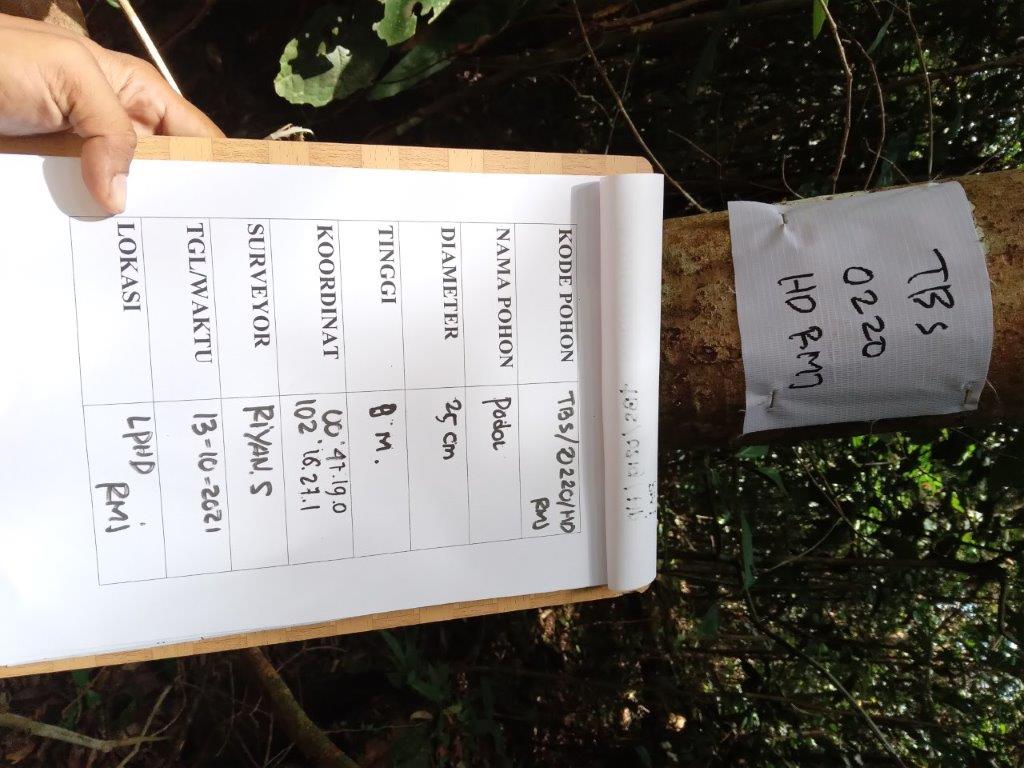 TBS
0220
HD RMJ
KODE POHON TBS/0220/HD
RMJ
NAMA POHON Podol
DIAMETER 25 cm
TINGGI 8 M.
KOORDINAT 00°47.19.0
102°16.27.1
SURVEYOR RIYAN.S
TGL/WAKTU 13-10-2021
LOKASI LPHD
RMJ